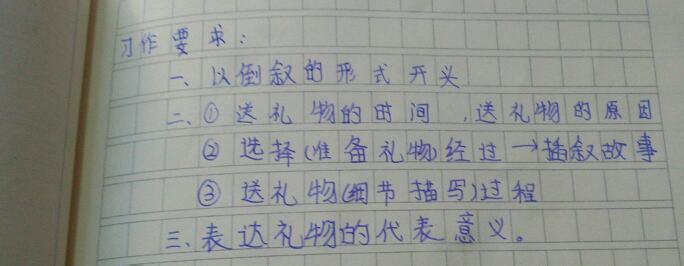 习作要求：
一、以倒叙的形式开头
二、①送礼物的时间，送礼物的原因
②选择(准备礼物)经过→插叙故事
③送礼物(细节描写)过程
三、表达礼物的代表意义。